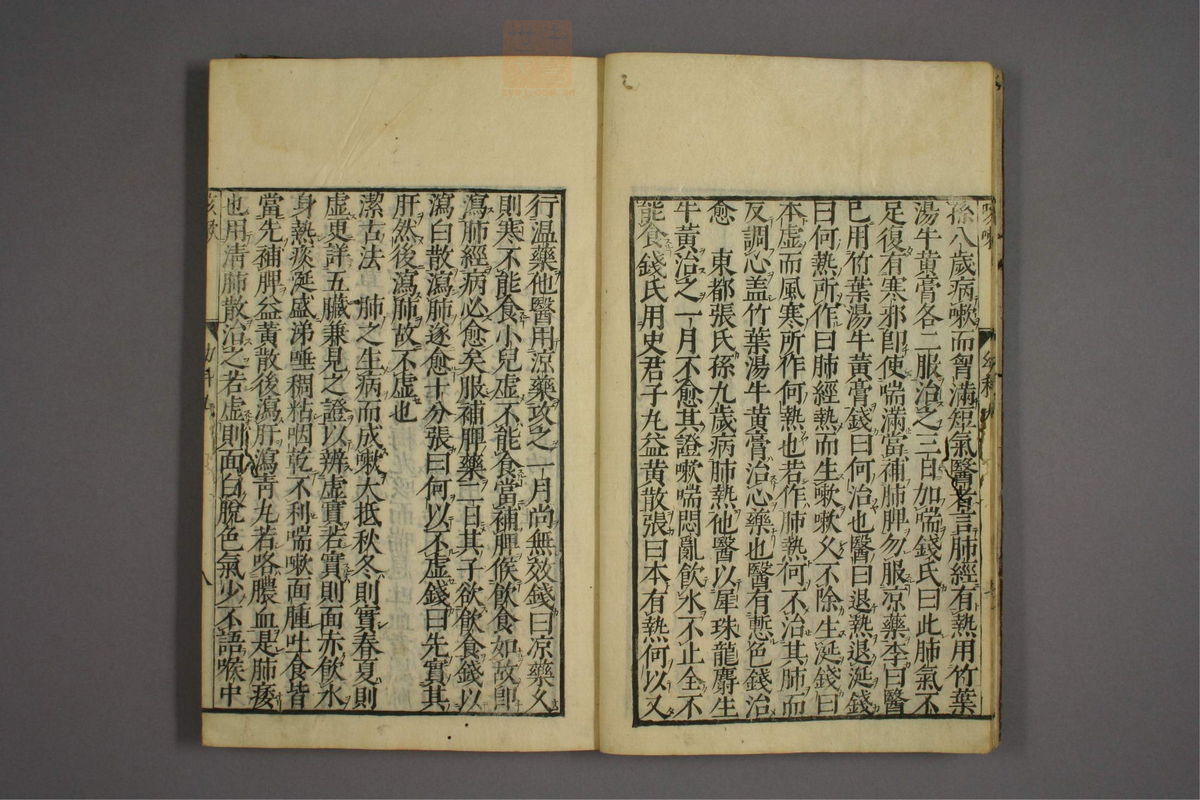 孫八歲病嗽而胷滿短氣醫者言肺經有熱用竹葉
湯牛黃膏各二服治之三日加喘錢氏曰此肺氣不
足復有寒邪卽使喘滿當補肺脾勿服凉藥李曰醫
已用竹葉湯牛黃膏錢曰何治也醫曰退熱退涎錢
曰何熱所作曰肺經熱而生嗽嗽久不除生涎錢曰
本虛而風寒所作何熱也若作肺熱何不治其肺而
反調心盖竹葉湯牛黃膏治心藥也醫有慙色錢治
愈　東都張氏孫九歲病肺熱他醫以犀珠龍麝生
牛黃治之一月不愈其證嗽喘悶亂飮水不止全不
能食錢氏用史君子丸益黃散張曰本有熱何以又
行温藥他醫用凉藥攻之一月尚無效錢曰凉藥久
則寒不能食小兒虛不能食當補脾候飮食如故卽
瀉肺經病必愈矣服補脾藥二日其子欲飮食錢以
瀉白散瀉肺遂愈十分張曰何以不虛錢曰先實其
肝然後瀉肺故不虛也
潔古法　肺之生病而成嗽大抵秋冬則實春夏則
虛更詳五臟兼見之證以辨虛實若實則面赤飮水
身熱痰涎盛涕唾稠粘咽乾不利喘嗽面腫吐食皆
當先補脾益黃散後瀉肝瀉靑丸若咯膿血是肺痿
也用淸肺散治之若虛則面白脫色氣少不語喉中